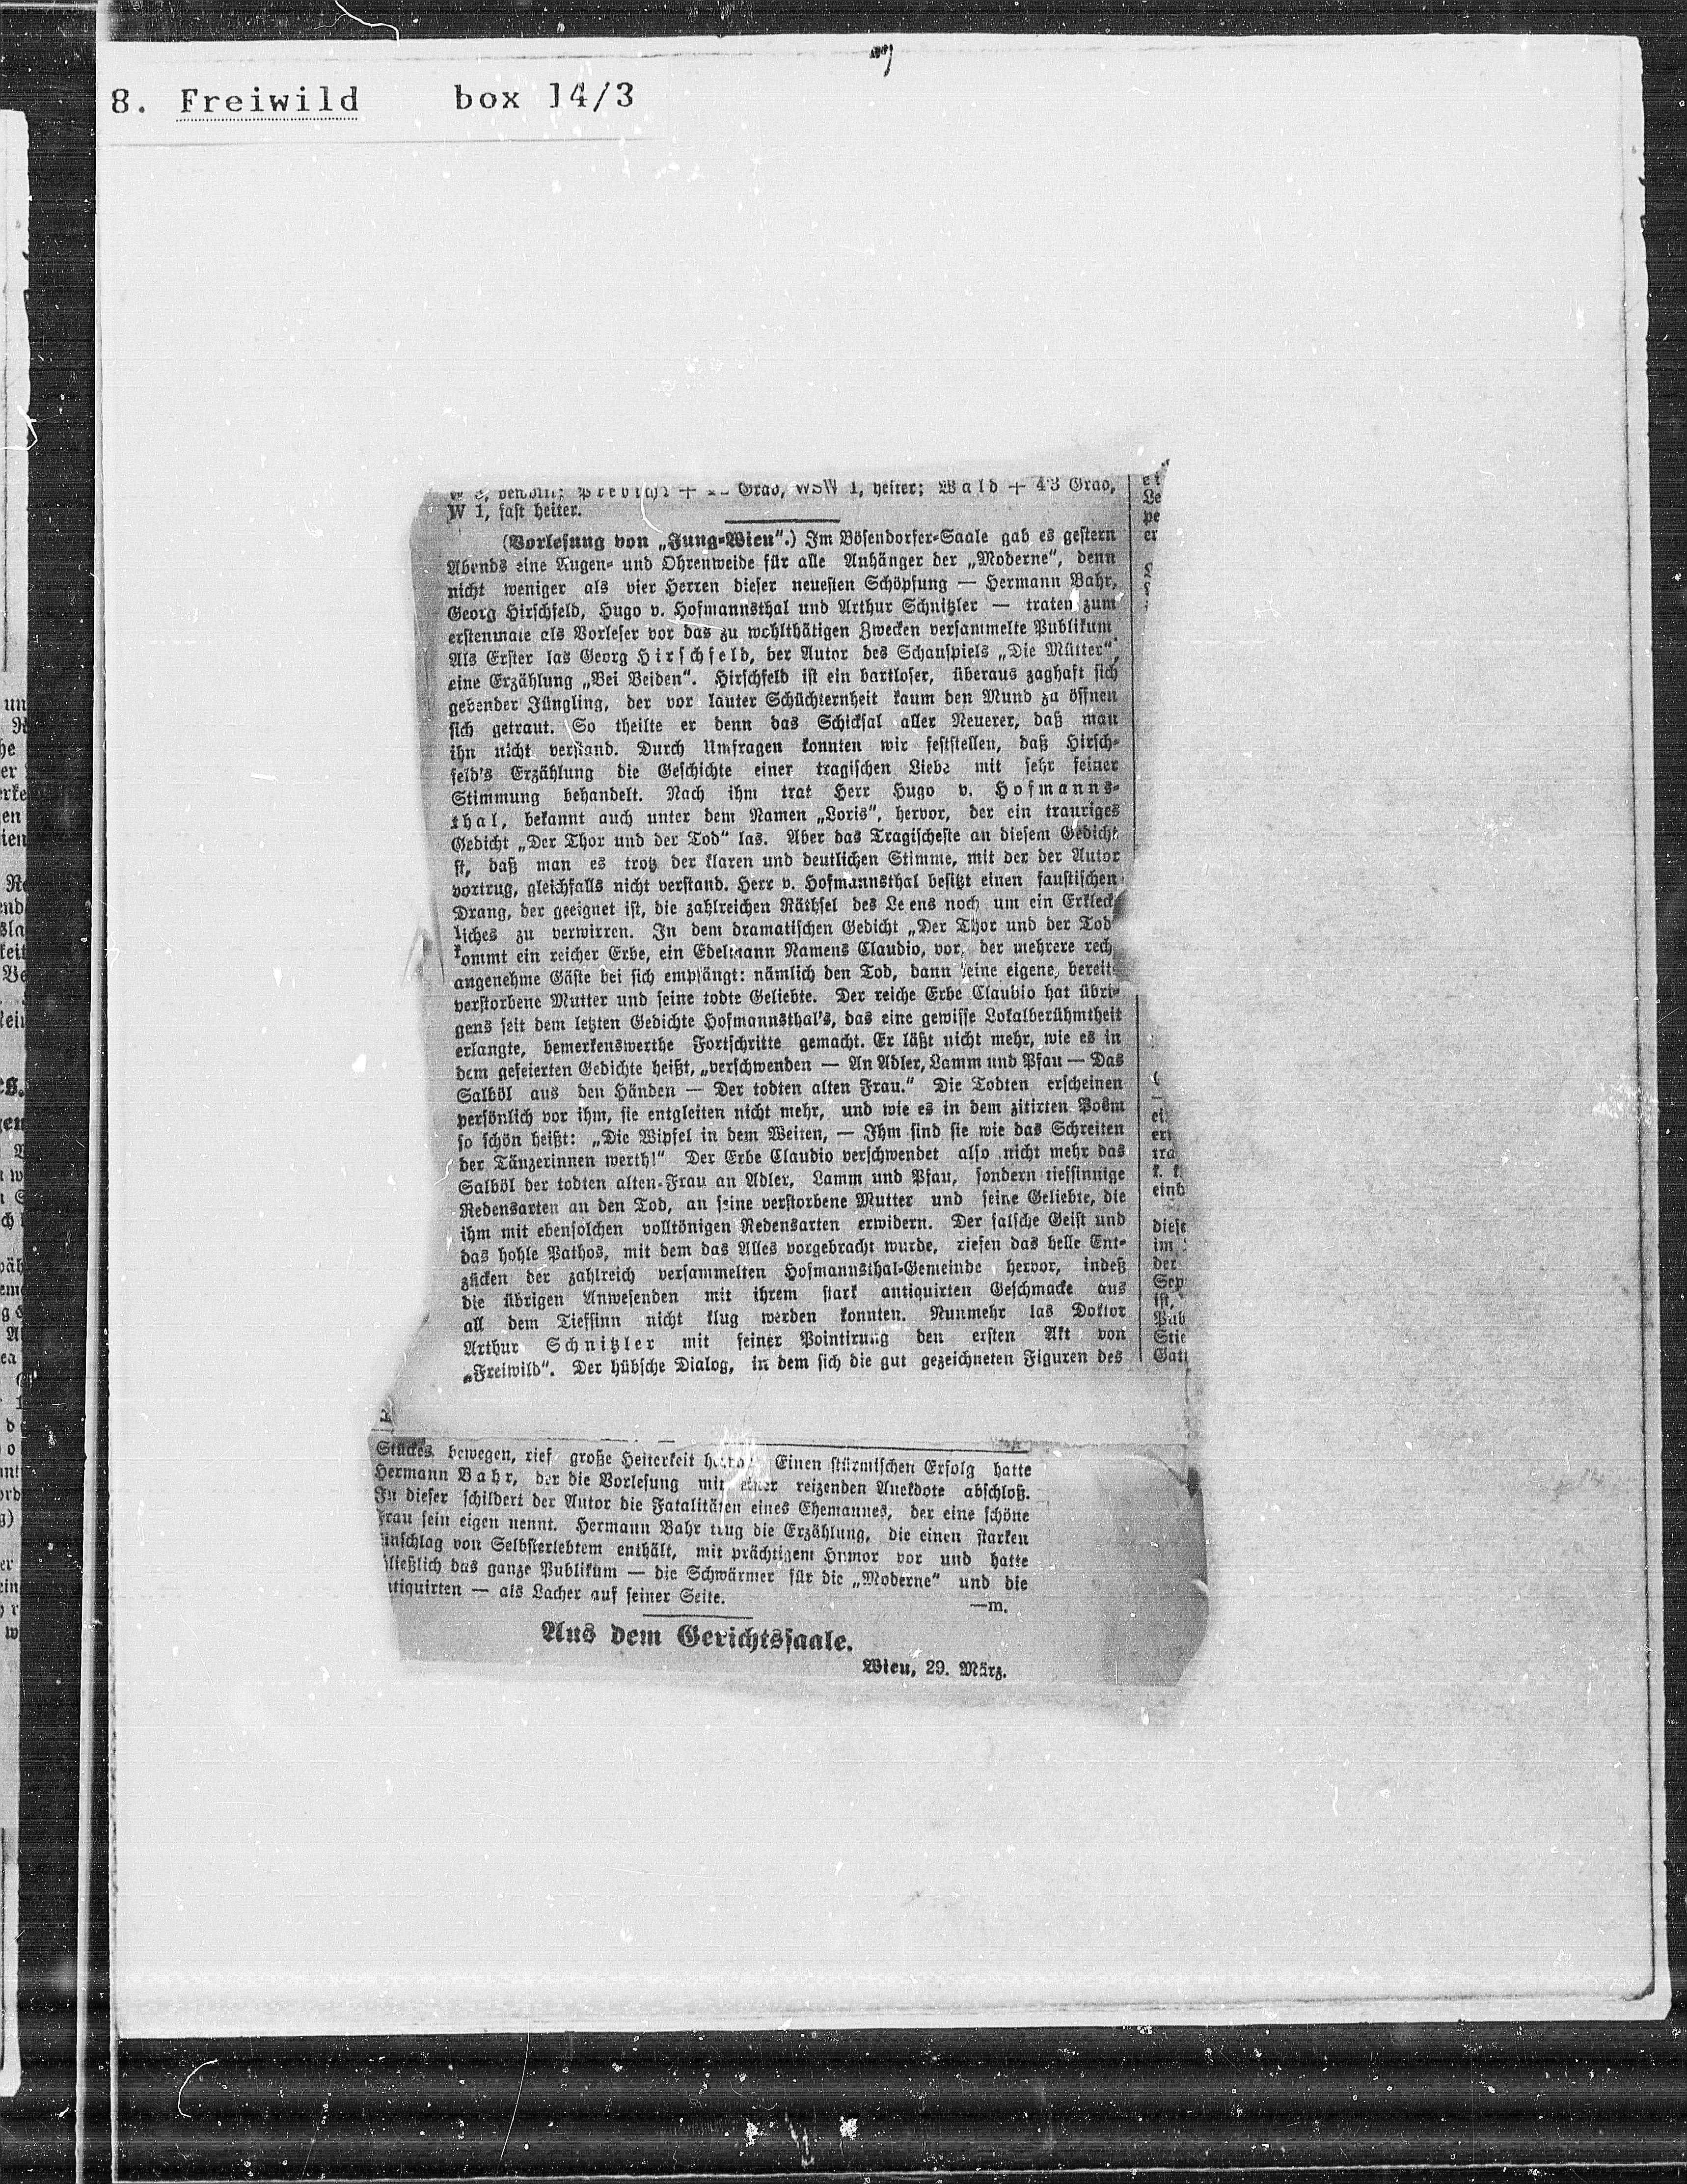 8. Freiwild box 14/3
Grad, WSW 1, heiter; Wald + 4·3 Grad,
W 1, fast heiter.
(Vorlesung von „Jung-Wien“.) Im Bösendorfer-Saale gab es gestern
Abends eine Augen- und Ohrenweide für alle Anhänger der „Moderne“, denn
nicht weniger als vier Herren dieser neuesten Schöpfung — Hermann Bahr,
Georg Hirschfeld, Hugo v. Hofmannsthal und Arthur Schnitzler — traten zum
erstenmale als Vorleser vor das zu wohlthätigen Zwecken versammelte Publikum
Als Erster las Georg Hirschfeld, der Autor des Schauspiels „Die Mütter“,
eine Erzählung „Bei Beiden“. Hirschfeld ist ein bartloser, überaus zaghaft sich
gebender Jüngling, der vor lauter Schüchternheit kaum den Mund zu öffnen
sich getraut. So theilte er denn das Schicksal aller Neuerer, daß man
ihn nicht verstand. Durch Umfragen konnten wir feststellen, daß Hirsch-
feld's Erzählung die Geschichte einer tragischen Liebe mit sehr feiner
Stimmung behandelt. Nach ihm trat Herr Hugo v. Hofmanns-
thal, bekannt auch unter dem Namen „Loris“, hervor, der ein trauriges
Gedicht „Der Thor und der Tod“ las. Aber das Tragischeste an diesem Gedicht
st, daß man es trotz der klaren und deutlichen Stimme, mit der der Autor
vortrug, gleichfalls nicht verstand. Herr v. Hofmannsthal besitzt einen faustischen
Drang, der geeignet ist, die zahlreichen Räthsel des Le ens noch um ein Erkleck-
liches zu verwirren. In dem dramatischen Gedicht „Der Thor und der Tod
kommt ein reicher Erbe, ein Edelmann Namens Claudio, vor, der mehrere rech
angenehme Gäste bei sich empfängt: nämlich den Tod, dann seine eigene, bereits
verstorbene Mutter und seine todte Geliebte. Der reiche Erbe Claudio hat übri-
gens seit dem letzten Gedichte Hofmannsthal's, das eine gewisse Lokalberühmtheit
erlangte, bemerkenswerthe Fortschritte gemacht. Er läßt nicht mehr, wie es in
dem gefeierten Gedichte heißt, „verschwenden — An Adler, Lamm und Pfau — Das
Salböl aus den Händen — Der todten alten Frau.“ Die Todten erscheinen
persönlich vor ihm, sie entgleiten nicht mehr, und wie es in dem zitirten Poëm
so schön heißt: „Die Wipfel in dem Weiten, — Ihm sind sie wie das Schreiten
der Tänzerinnen werth!“ Der Erbe Claudio verschwendet also nicht mehr das
Salböl der todten alten Frau an Adler, Lamm und Pfau, sondern tiefsinnige
Redensarten an den Tod, an seine verstorbene Mutter und seine Geliebte, die
ihm mit ebensolchen volltönigen Redensarten erwidern. Der falsche Geist und
das hohle Pathos, mit dem das Alles vorgebracht wurde, riefen das helle Ent-
zücken der zahlreich versammelten Hofmannsthal-Gemeinde hervor, indeß
die übrigen Anwesenden mit ihrem stark antiquirten Geschmacke aus
all dem Tiefsinn nicht klug werden konnten. Nunmehr las Doktor
Arthur Schnitzler mit feiner Pointirung den ersten Akt von
„Freiwild“. Der hübsche Dialog, in dem sich die gut gezeichneten Figuren des
Stückes bewegen, rief große Heiterkeit Einen stürmischen Erfolg hatte
Hermann Bahr, der die Vorlesung mit einer reizenden Anekdote abschloß.
In dieser schildert der Autor die Fatalitäten eines Ehemannes, der eine schöne
Frau sein eigen nennt. Hermann Bahr trug die Erzählung, die einen starken
Einschlag von Selbsterlebtem enthält, mit prächtigem Humor vor und hatte
hließlich das ganze Publikum — die Schwärmer für die „Moderne“ und die
ntiquirten — als Lacher auf seiner Seite.
—m.
Aus dem Gerichtssaale.
Wien, 29. März.